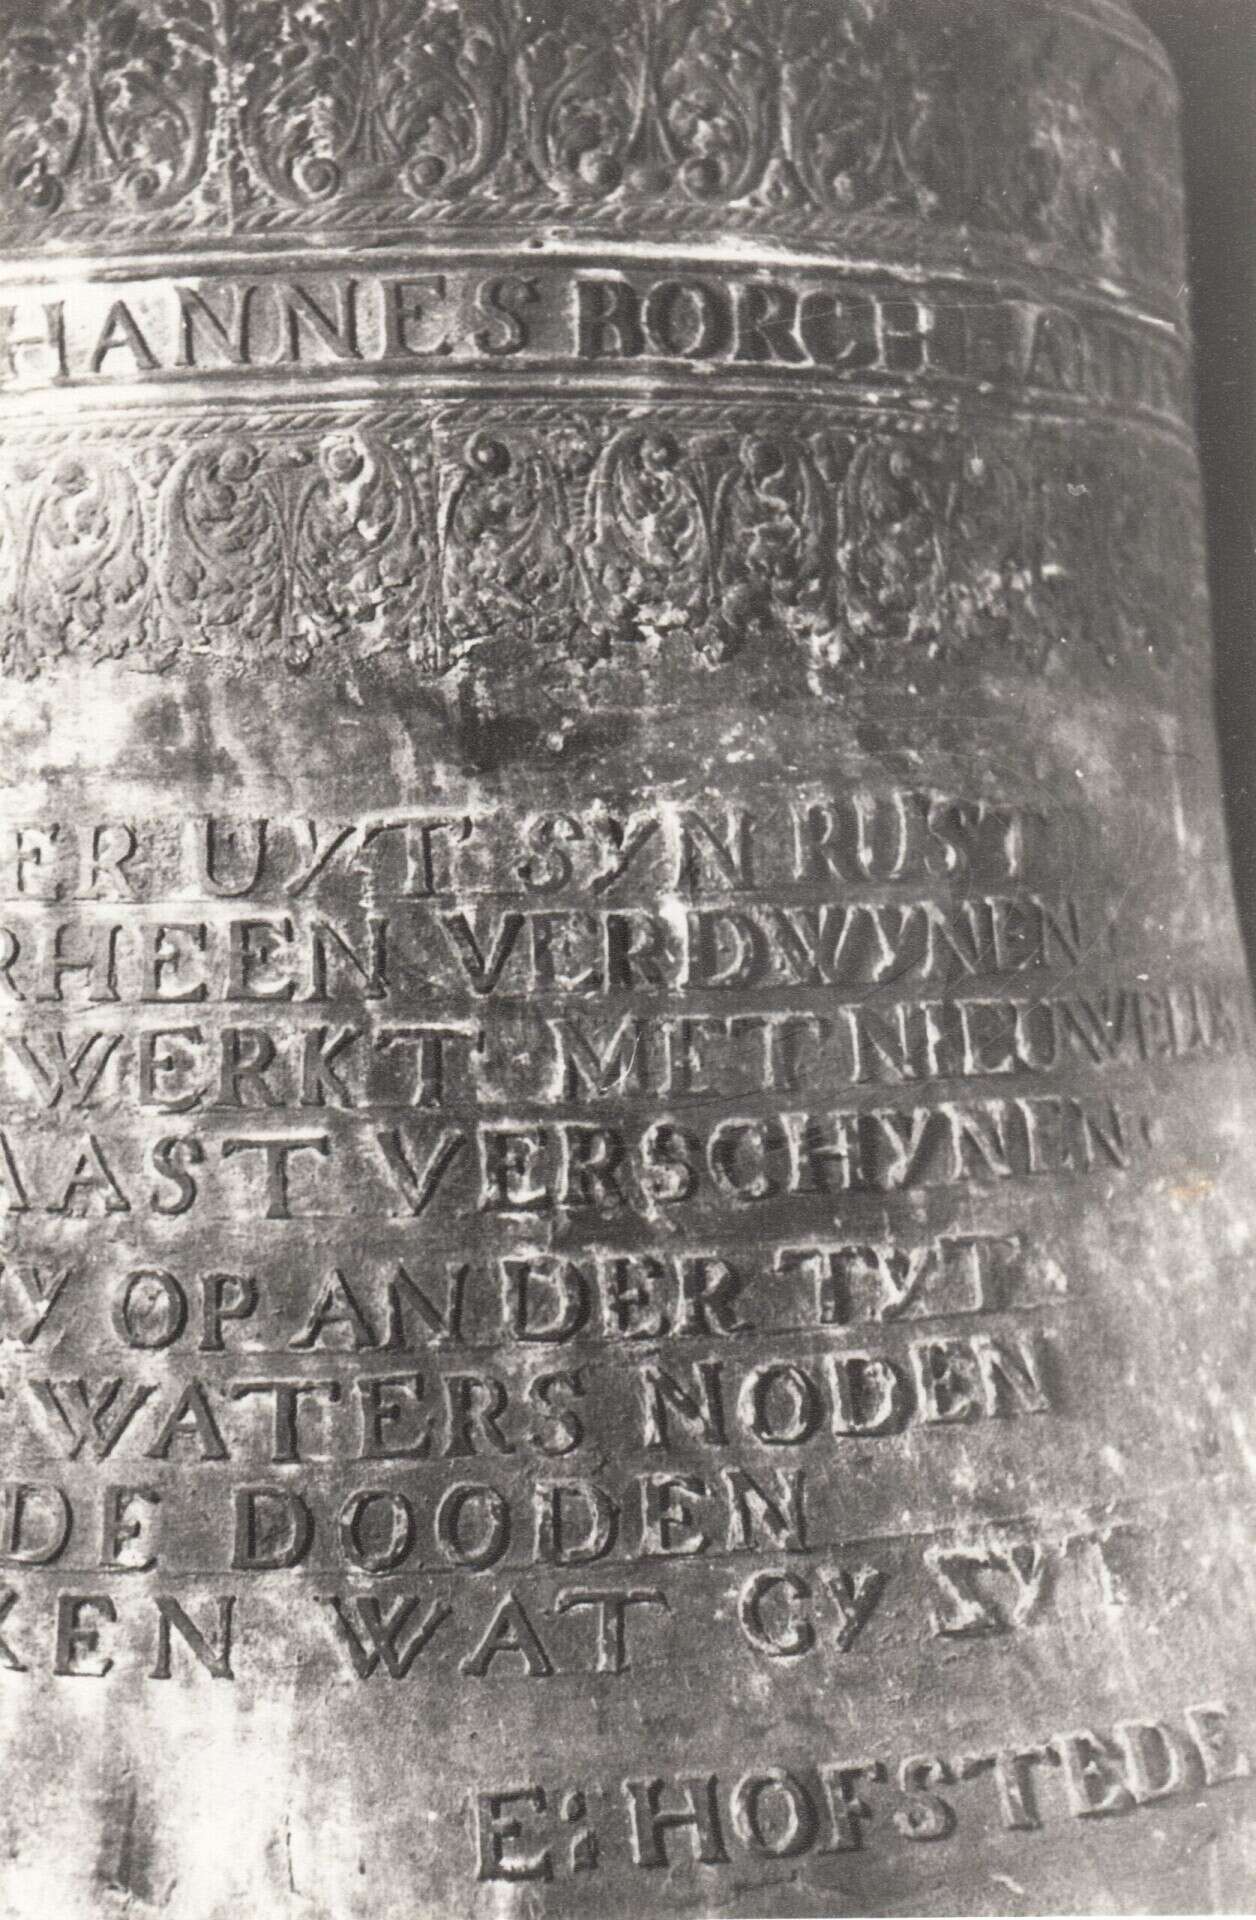 HANNES BORCH
ER UYT SYN RUST
RHEEN VERDWYNEN
WERKT MET NIEUWE
AAST VERSCHYNEN
Y OP AN DER TYT
WATERS NODEN
DE DOODEN
KEN WAT GY ZYT
E: HOFSTEDE